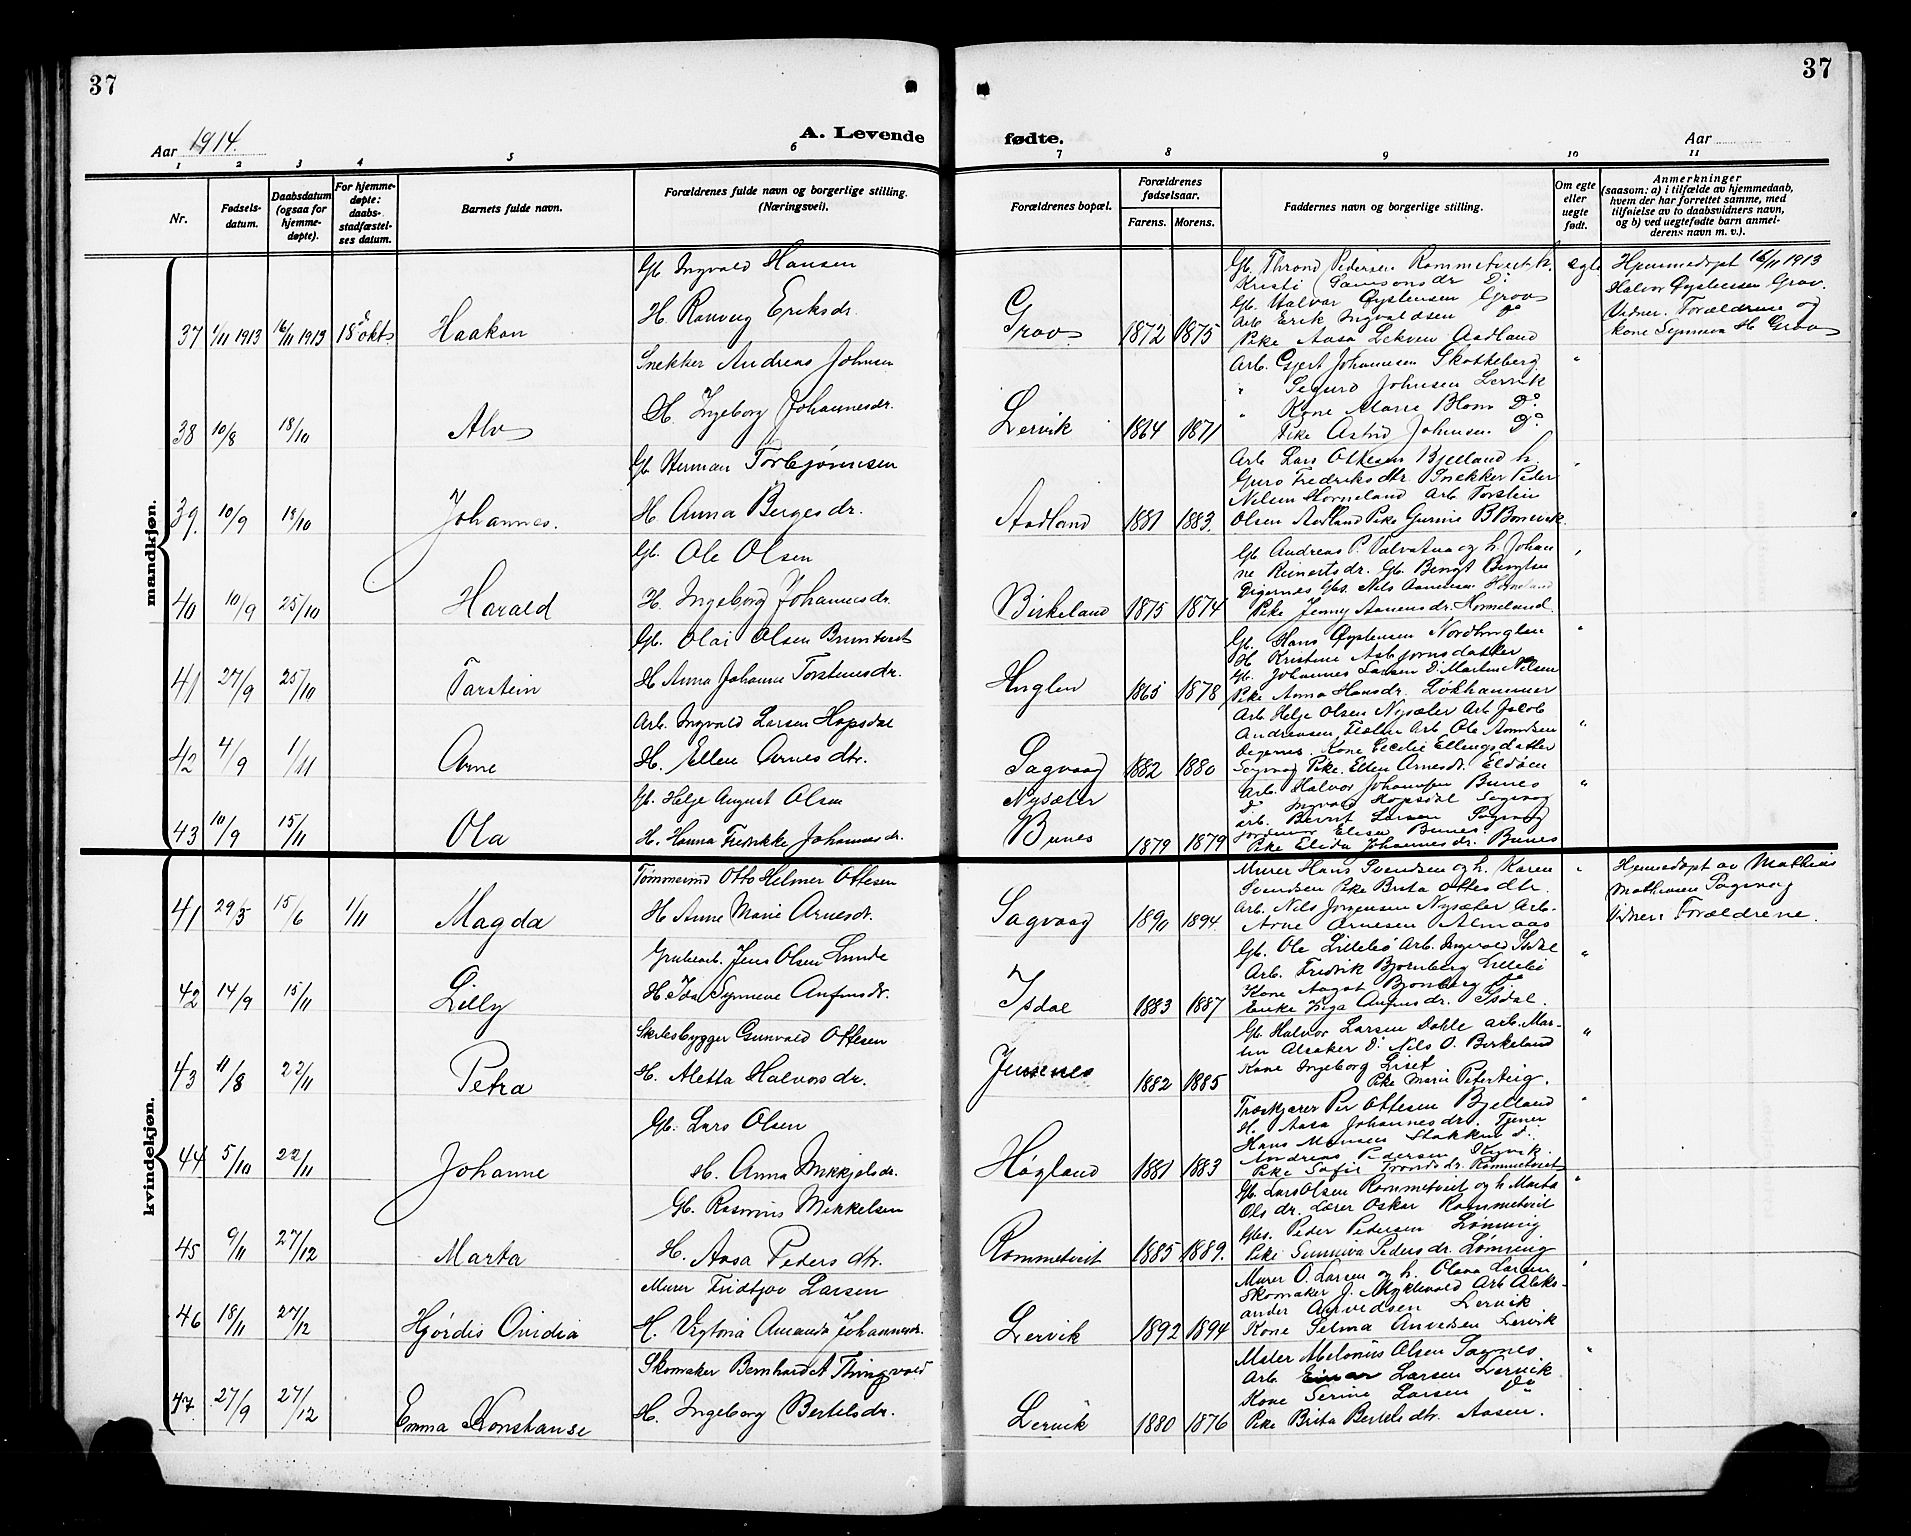 37
37
Aar 1914.
A. Levende
fødte.
Aar
1 2 3 4 5 6 7 8 9 10 11
Nr.
Fødsels-
datum.
Daabsdatum
(ogsaa for
hjemme-
døpte).
For hjemme-
døpte:
daabs-
stadfæstel-
ses datum.
Barnets fulde navn.
Forældrenes fulde navn og borgerlige stilling.
(Næringsvei).
Forældrenes bopæl.
Forældrenes
fødselsaar.
Farens. Morens.
Faddernes navn og borgerlige stilling.
Om egte
eller
uegte
født.
Anmerkninger
(saasom: a) i tilfælde av hjemmedaab,
hvem der har forrettet samme, med
tilføielse av to daabsvidners navn,
og b) ved uegtefødte barn anmel-
derens navn m. v.).
mandkjøn.
37 1/11 1913 16/11 1913 18 okt Haakon
Gb. Ingvald Hansen
H. Ranveig Eriksdr.
Grov 1872 1875
Gb. Thrond Pedersen Rommetveit h.
Kristi Samsonsdr Do
Gb. Halvor Øystensen Grov
Arb. Erik Ingvaldsen Do
Pike Aasa Lekven Aadland
egte
Hjemmedøpt 16/11 1913
Halvor Øystensen Grov.
Vidner: Forældrene og
kone Synneva H. Grov
38 10/8 18/10 Alv
Snekker Andreas Johnsen
H. Ingeborg Johannesdr.
Lervik 1864 1871
Arb. Gjert Johannesen Skotteberg
" Sigurd Johnsen Lervik
" Kone Marie Blom Do
Pike Astrid Johnsen Do
"
39. 10/9 18/10 Johannes.
Gb. Herman Torbjørnsen
H. Anna Bergesdr.
Aadland 1881 1883.
Arb. Lars Ottesen Bjelland h.
Guro Fredriksdtr. Snekker Peder
Nilsen Horneland Arb. Torstein
Olsen Aadland Pike Gurine B. Bonevik.
"
40 10/9 25/10 Harald
Gb. Ole Olsen
H. Ingeborg Johannesdr.
Birkeland 1875 1874
Gb. Andreas P. Valvatna og h. Johan
ne Reinertsdr. Gb. Bengt Bengtsen
Digernes Gbs. Nils Aanensen Horneland
Pike Jenny Aanensdr. Horneland.
"
41 27/9 25/10 Torstein
Gb. Olai Olsen
H. Anna Johanne Torstensdr.
Huglen 1865 1878
Gb. Hans Øystensen Nordhuglen
H. Kristine Asbjørnsdatter
Gb. Johannes Larsen Do Martin Nilsen
Pike Anna Hansdr. Løkhammer
"
42 4/9 1/11 Arne
Arb. Ingvald Larsen Hopsdal
H. Ellen Arnesdtr.
Sagvaag 1882 1880
Arb. Helje Olsen Nysæter Arb. Jacob
Andreasen Arb. Ole
Digernes. Kone Cecilie Ellingsdatter
Sagvaag Pike. Ellen Arnesdr. Eldøen
"
43 10/9 15/11 Ola
Gb. Helje August Olsen
H. Hanna Fredrikke Johannesdr.
Nysæter
Bunes 1879 1879
Arb. Halvor Johansen Bunes
Do Ingvald Hopsdal Sagvaag
arb. Bernt Larsen Sagvaag
Jordmor Elise Bunes
Pike Elida Johannesdr. Bunes
"
kvindekjøn.
41 29/5 15/6 1/11 Magda
Tømmermd Otto Helmer Ottesen
H. Anne Marie Arnesdr.
Sagvaag 1890 1894
Murer Hans Svendsen og h. Karen
Svendsen Pike Brita Ottesdtr.
Arb. Nils Jørgensen Nysæter Arb.
Arne Arnesen Almaas
"
Hjemmedøpt av Mathias
Mathiasen Sagvaag
Vidner: Forældrene.
42 14/9 15/11 Lilly
Grubearb. Jens Olsen Lunde
H. Ida Synneve Anfinsdr.
Isdal 1883 1887
Gb. Ole Lillebø Arb. Ingvald Isdal
Arb. Fredrik Bjørnberg Lillebø
Kone August Bjørnberg Do
Enke Inga Anfinsdr. Isdal.
"
43 11/8 22/11 Petra
Skibsbygger Gunvald Ottesen
H. Aletta Halvorsdr.
Jensenes 1882 1885
Gb. Halvor Larsen Dahle arb. Mar-
tin Alsaker Do Nils O. Birkeland
Kone Ingeborg Liset
Pike Marie Petersteig.
"
44 5/10 22/11 Johanne
Gb. Lars Olsen
H. Anna Mikkjelsdr.
Høgland 1881 1883
Træskjærer Per Ottesen Bjelland
H. Aasa Johannesdr. Tjener
Hans Monsen Stokken Do.
Andreas Pedersen
Pike Sofie Trondsdr. Rommetveit
"
45 9/11 27/12 Marta
Gb. Rasmus Mikkelsen
H. Aasa Pedersdtr.
Rommetveit 1885 1889.
Gb. Lars Olsen Rommetveit og h. Marta
Olsdr. Lærer Oskar Rommetveit
Gbs. Peder Pedersen Lønning
Pike Sunniva Pedersdr. Lønning
"
46 18/11 27/12 Hjördis Ovidia
Murer Fridtjov Larsen
H. Viktoria Amanda Johannesdr.
Lervik 1892 1894
Murer O. Larsen og h. Olava Larsen
Skomaker J. Myklevold Arb. Aleks-
ander Arvedsen Lervik
Kone Selma Arvedsen Lervik
"
47. 27/9 27/12 Emma Konstanse
Skomaker Bernhard A Thingvold
H. Ingeborg Bertelsdr.
Lervik 1880 1876
Maler Melonius Olsen Sagnes
Arb. Einar Larsen Lervik
Kone Serine Larsen Do
Pike Brita Bertelsdtr. Aasen.
"